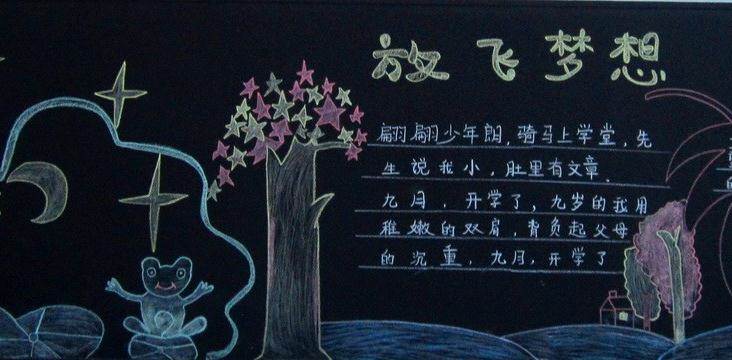 放飞梦想
翩翩少年朗，骑马上学堂，先
生说我小，肚里有文章。
九月，开学了，九岁的我用
稚嫩的双肩，背负起父母
的沉重，九月，开学了